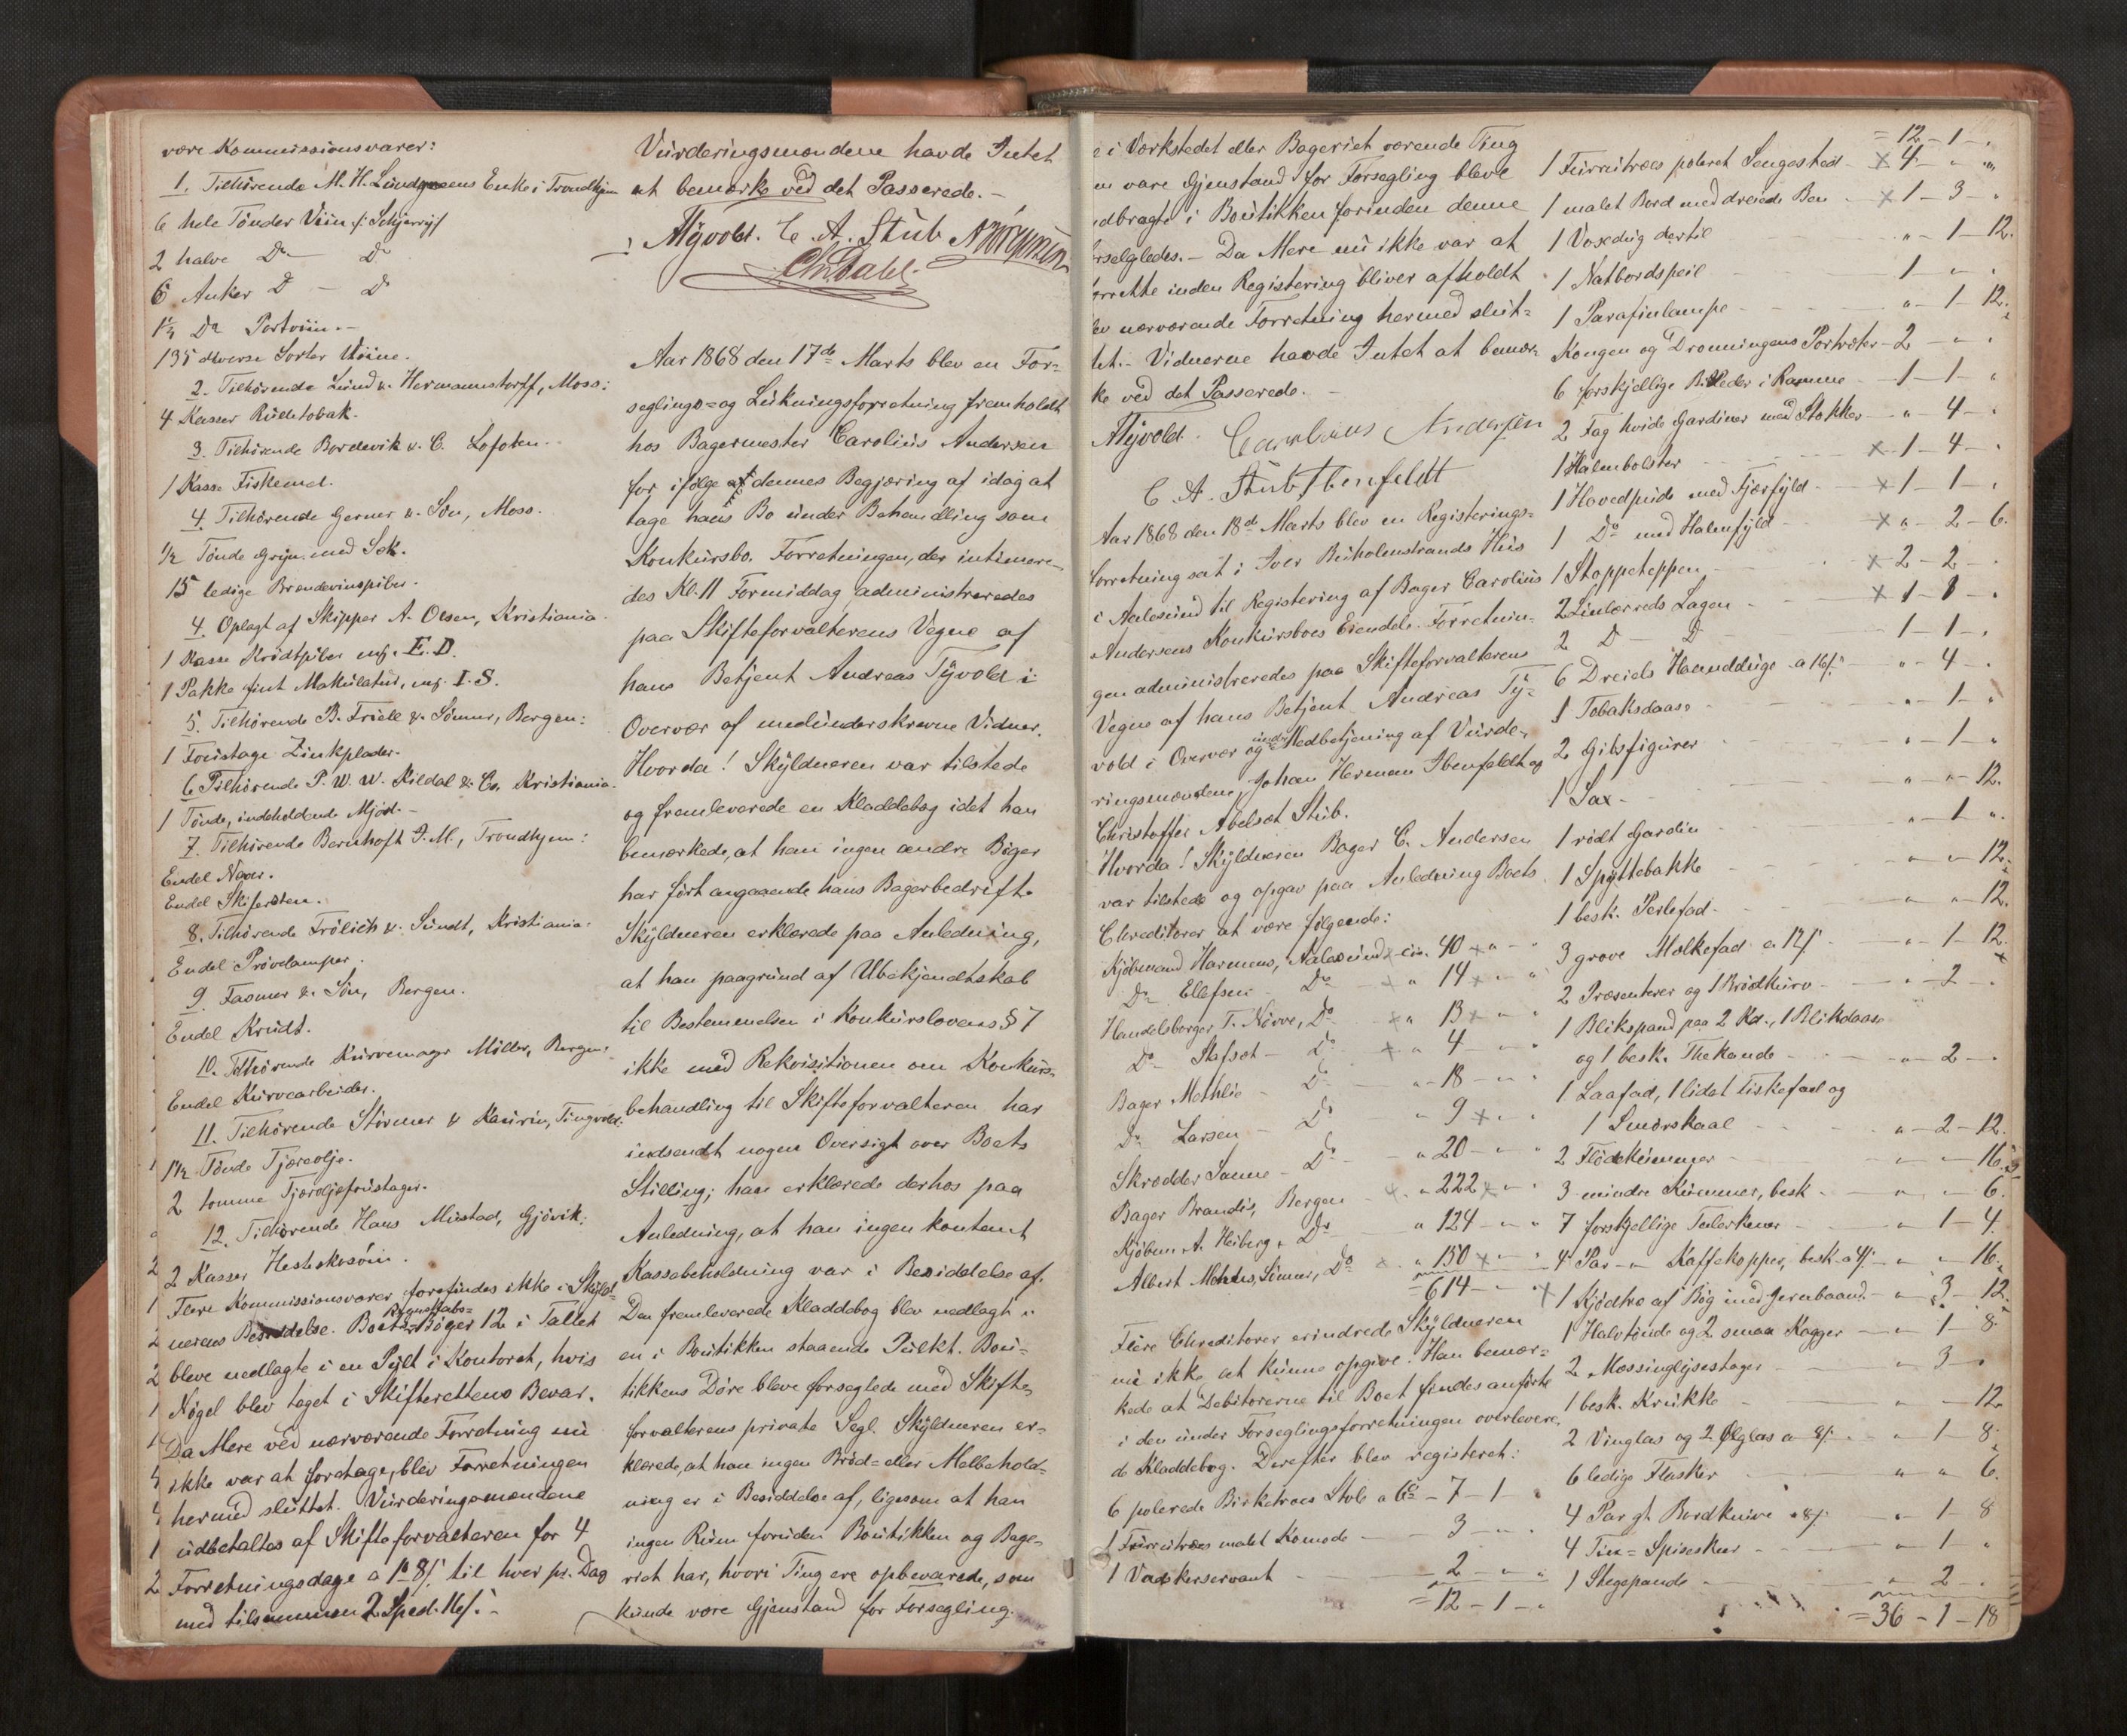 være Kommissionsvarer:
1. Tilhørende M. H. Lundgreens Enke i Trondhjem
6 hele Tönder Viin /: Schjerry:/
2 halve Do — Do
6 Anker D — D
1½ Do Portviin. —
135 diverse Sorter Viine.
2. Tilhörende Lund & Hermannstorff, Moss:
4 Kasser Rüdetobak.
3. Tilhörende Bordevik & C. Lofoten.
1 Kasse Fiskemel.
4. Tilhörende Gerner & Sön, Moss.
½ Tönde Gryn med Sek.
15 ledige Brændevinspiber.
4. Oplagt af Skipper A. Olsen, Kristiania.
1 Kasse Kridtpiber mf. E. D.
1 Pakke fint Makulatur, mf. I. S.
5. Tilhörende B. Friele & Sönner, Bergen:
1 Foustage Zinkplader.
6 Tilhörende P. W. W. Kildal & Co, Kristiania.
1 Tönde, indeholdende Mjöd. —
7. Tilhörende Bernhoft I. M., Trondhjem:
Endel Naver.
Endel Skifersten.
8. Tilhörende Frölich & Sundt, Kristiania:
Endel Prövelamper.
9. Fasmer & Sön, Bergen.
Endel Krudt.
10. Tilhörende Kurvemager Möller, Bergen:
Endel Kurvearbeider.
11. Tilhörende Störmer & Kaurin, Tingvold:
1½ Tönde Tjæreolje.
2 tomme Tjæroljefoustager.
12. Tilhörende Hans Mustad, Gjövik:
2 Kasser Hesteskosöm.
Flere Kommissionsvarer forefindes ikke i Skyld-
nerens Besiddelse. Boets Regnskabs= Böger 12 i Tallet
bleve nedlagte i en Pylt i Kontoret, hvis
Nögel blev taget i Skifterettens Bevar.
Da Mere ved nærværende Forretning nu
ikke var at foretage, blev Forretningen
hermed sluttet. Vurderingsmændene
udbetaltes af Skifteforvalteren for 4
Forretningsdage a 1 8/. til hver pr. Dag
med tilsammen 2 Spd. 16/. -
Vurderingsmændene havde Intet
at bemærke ved det Passerede. —
Myvold. C. A. Stub N Jörgensen
Chr Dahl
Aar 1868 den 17de Marts blev en For=
seglings= og Lukningsforretning fremholdt
hos Bagermester Carolius Andersen
for ifölge af dennes Begjæring af idag at
tage hans Bo under Behandling som
Konkursbo. Forretningen, der intimere-
des Kl. 11 Formiddag administreredes
paa Skifteforvalterens Vegne af
hans Betjent Andreas Tyvold i
Overvær af medunderskrevne Vidner.
Hvorda! Skyldneren var tilstede
og fremleverede en Kladdebog idet han
bemærkede, at han ingen andre Böger
har fört angaaende hans Bagerbedrift.
Skyldneren erklærede paa Anledning,
at han paagrund af Ubekjendtskab
til Bestemmelsen i Konkurslovens § 7
ikke med Rekvisitionen om Konkurs-
behandling til Skifteforvalteren har
indsendt nogen Oversigt over Boets
Stilling; han erklærede derhos paa
Anledning, at han ingen kontant
Kassabeholdning var i Besiddelse af.
Den fremleverede Kladdebog blev nedlagt i
en i Boutikken staaende Pulkt. Bou-
tikkens Döre bleve forseglede med Skifte-
forvalterens private Segl. Skyldneren er-
klærede, at han ingen Bröd= eller Melbehold-
ning er i Besiddelse af, ligesom at han
ingen Rum foruden Boutikken og Bage-
riet har, hvori Ting ere opbevarede, som
kunde være Gjenstand for Forsegling.
e i Værkstedet eller Bageriet værende Ting
m vare Gjenstand for Forsegling bleve
ndbragte i Boutikken forinden denne
rseiledes. — Da Mere nu ikke var at
orrette inden Registering bliver afholdt
ev nærværende Forretning hermed slut=
tet. — Vidnerne havde Intet at bemær=
ke ved det Passerede. —
Myvold. Carolius Andersen
C. A. Stub Ibenfeldt
Aar 1868 den 18d Marts blev en Registerings=
forretning sat i Iver Buholmstrands Hus
i Aalesund til Registering af Bager Carolius
Andersens Konkursboes Eiendele. Forretnin-
gen administreredes paa Skifteforvalterens
Vegne af hans Betjent Andreas Ty=
vold i Overvær og under Medbetjening af Vurde-
ringsmændene, Johan Herman Ibenfeldt og
Christoffer Abelset Stub.
Hvorda! Skyldneren Bager C. Andersen
var tilstede og opgav paa Anledning Boets
Chreditorer at være fölgende:
Kjöbmand Harmens, Aalesund — 40 — " — "
Do Elefsen — Do — " 14 — " — "
Handelsborger T. Nörve, Do — " 13 — " — "
Do Stafset — Do — " 4 — " — "
Bager Methlie — Do — " 18 — " — "
Do Larsen — Do — " 9 — " — "
Skrædder Sanne — Do — " 20 — " — "
Bager Brandis, Bergen — " 222 — " — "
Kjöbm A. Heiberg, Do — " 124 — " — "
Albert Mohns, Sönner, Do — " 150 — " — "
= 614 — " — "
Flere Chreditorer erindrede Skyldneren
nu ikke at kunne opgive. Han bemær=
kede at Debitorerne til Boet findes anförte
i den under Forseglingsforretningen overlevere-
de Kladdebog. Derefter blev registeret:
6 polerede Birketræes Stole a 6 — 7 — 1 — "
1 Furrutræes malet Komode — 3 — " — "
1 Vaskerservant — 2 — " — "
= 12 — 1 — "
= 12 — 1 — "
1 Furrutræes poleret Sengested — 4 — " — "
1 malet Bord med dreiede Ben — 1 — 3 — "
1 Voxdug dertil — " — 1 — 12.
1 Natbordspeil — 1 — " — "
1 Parafinlampe — " — 1 — 12.
Kongen og Dronningens Portræter — 2 — " — "
6 forskjellige Billeder i Ramme — 1 — 1 — "
2 Fag hvide Gardiner med Stokker — " — 4 — "
1 Halmbolster — 1 — 4 — "
1 Hovedpude med Fjærfyld — 1 — 1 — "
1 Do med Halmfyld — " — 2 — 6.
1 Stoppeteppen — 2 — 2 — "
2 Linlærreds Lagen — 1 — 1 — "
2 D — D — 1 — 1 — "
6 Dreiels Haandduge a 16/. — " — 4 — "
1 Tobaksdaase — " — 1 — "
2 Gibsfigurer — " — 1 — "
1 Sax — " — " — 12.
1 rödt Gardin — " — 1 — "
1 Spyttebakke — " — " — 12.
1 besk. Perlefad — " — " — 12.
3 grove Melkefad a 12/. — " — 1 — 12.
2 Præsenterer og 1 Brödkurv — " — 2 — "
1 Blikspand paa 2 Kd., 1 Blikdaase
og 1 besk. Thekande — " — 2 — "
1 Laafad, 1 lidet Fiskefad og
1 Smörskaal — " — 2 — 12.
2 Flödekummer — " — " — 16.
3 mindre Kummer, besk. — " — " — 6.
7 forskjellige Talerkener — " — 1 — 4.
4 Par — Kaffekopper, besk. a 4/. — " — " — 16.
1 Kjödtre af Bög med Jernbaand — " — 3 — 12.
1 Halvtönde og 2 smaa Kagger — " — 1 — 8.
2 Messinglysestager — " — 3 — "
1 besk. Krukke — " — " — 12.
2 Vinglas og 2 Ölglas a 8/. — " — 1 — 8.
6 ledige Flasker — " — " — 6.
4 Par gl. Bordknive a 8/. — " — 1 — 8
4 Tin= Spiseskeer — " — 1 — "
1 Stegepande — " — 2 — "
= 36 — 1 — 18